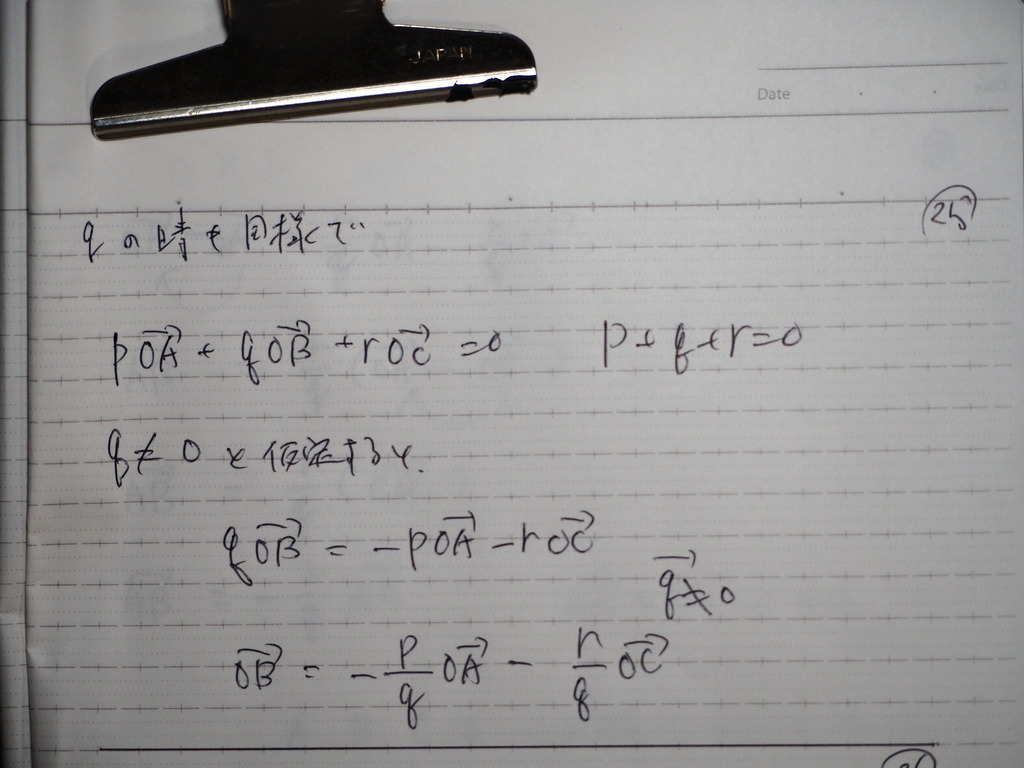 JAPAN
Date
25
qの時も同様くで
pOA→ + qOB→ + rOC→ = 0 p+q+r=0
q≠0と仮定すると.
qOB→ = -pOA→ - rOC→
q→≠0
OB→ = -p/q OA→ - r/q OC→